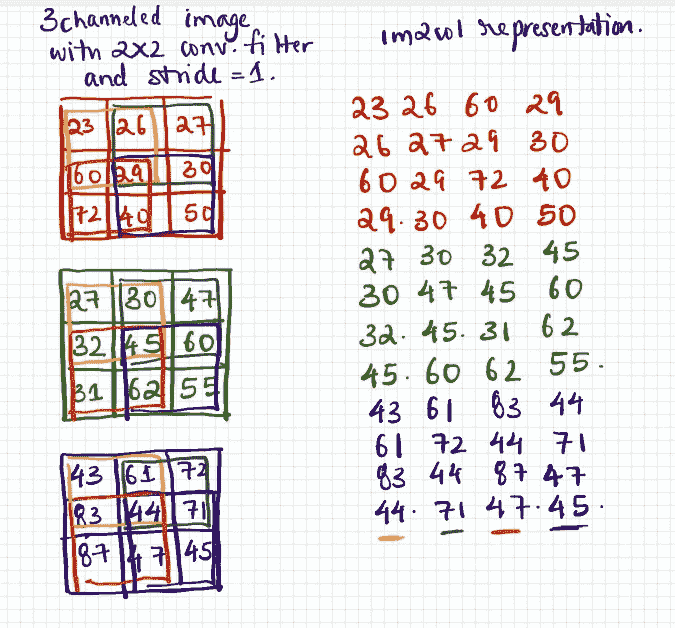 3 channeled image
with 2x2 conv. filter
and stride = 1.
im2col representation.
23 26 27
60 29 30
72 40 50
27 30 47
32 45 60
31 62 55
43 61 72
83 44 71
87 47 45
23 26 60 29
26 27 29 30
60 29 72 40
29. 30 40 50
27 30 32 45
30 47 45 60
32. 45. 31 62
45. 60 62 55.
43 61 83 44
61 72 44 71
83 44 87 47
44. 71 47. 45.